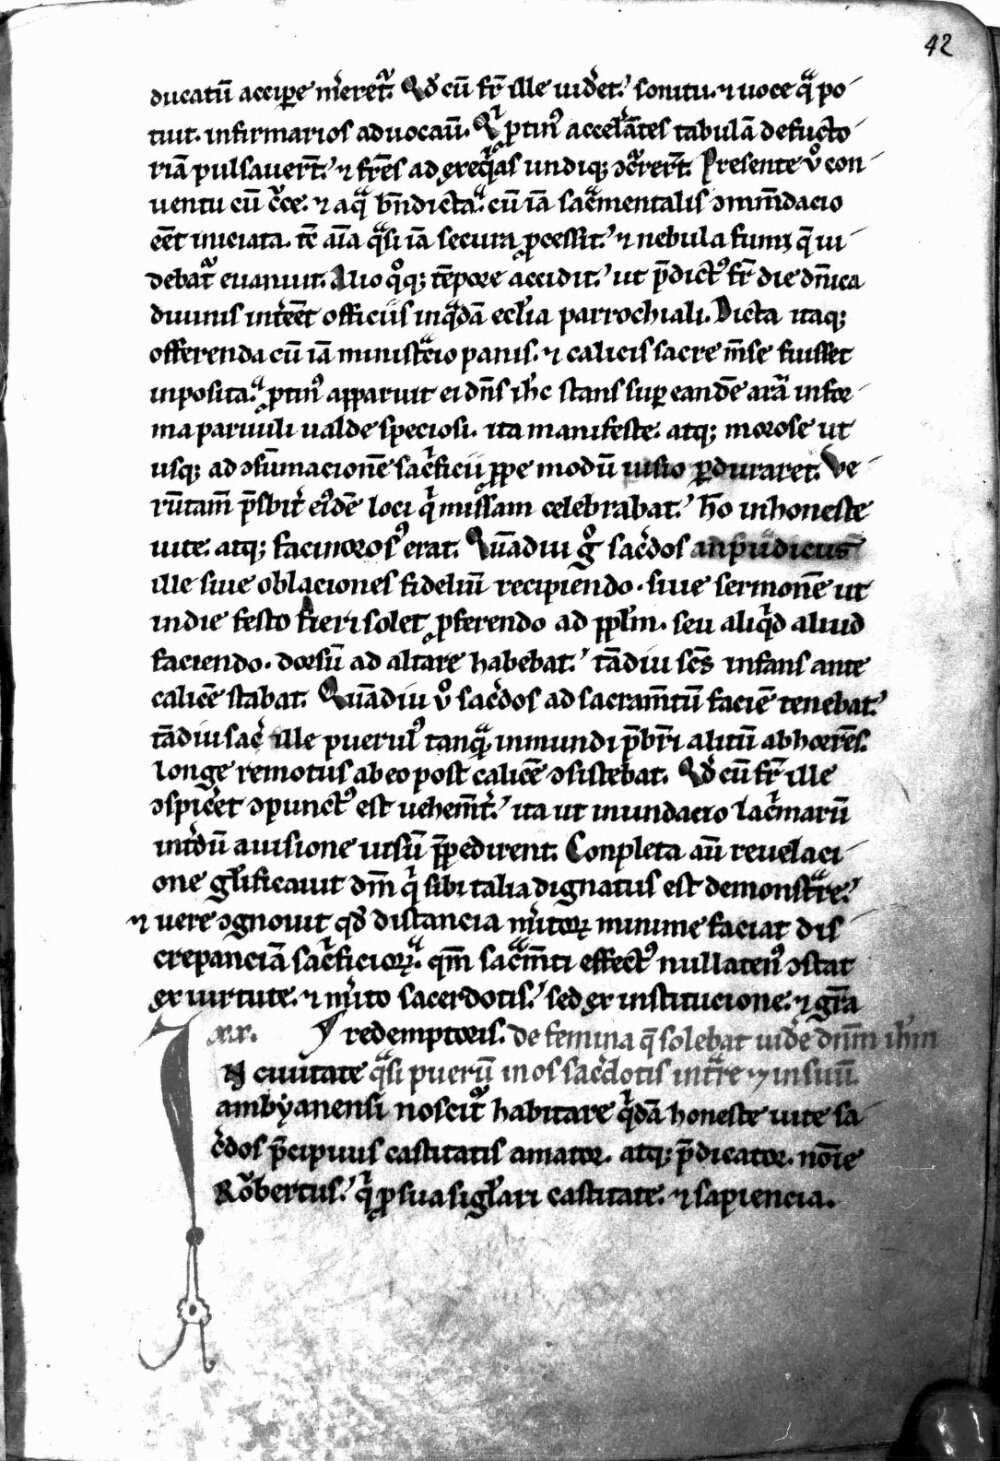 42
ducatū accipe m̄eret᷑. Qđ cū fr̄ ille uid̾et.' sonitu. ⁊ uoce qͣ po-
tuit. infirmarios aduocauit. Qi ꝓtinꝰ accel̾ātes tabulā defūcto
riā pulsauer̄t.' ⁊ fr̄es ad exeq̄as undiqꝫ ꝯcͥrer̄t. Presente v̊ con-
uentu cū c̾ce. ⁊ aqͣ bn̄dictaͣ. cū iā sac̾mentalis ꝯmn̄dacio
eēt iniciata. tc̄ aīa qͣsi iā secura ꝓcessit.' ⁊ nebula fumi q̄ ui-
debat᷑ euanuit. Alio q̊qꝫ tēpore accidit.' ut p̄dictꝰ fr̄ die dn̄ica
diuinis int̾eēt officiis in qͣdā ecl̄ia parrochiali. Dicta itaqꝫ
offerenda cū iā minist̾io panis. ⁊ calicis sacre m̄se fuisset
inposita.' ꝓtinꝰ apparuit ei dn̄s ih̄c stans suꝑ eandē arā in for-
ma paruuli ualde speciosi. ita manifeste. atqꝫ morose ut
usqꝫ ad ꝯsūmacionē sac̾ficii ꝓpe modū uisio ꝑduraret. Ve-
rūtam̄ p̄sbit̾ eiꝰdē loci qͥ missam celebrabat.' h̄o inhoneste
uite. atqꝫ facinorosꝰ erat. Quādiu g̊ sac̾dos inpudicus
ille siue oblaciones fideliū recipiendo. siue sermonē ut
in die festo fieri solet ꝓferendo ad ppl̄m. seu aliqͥd aliud
faciendo. dorsū ad altare habebat.' tādiu sc̄s infans ante
calicē stabat. Quādiu v̊ sac̾dos ad sacram̄tū faciē tenebat.'
tādiu sac̾ ille puerulꝰ tanqͣ inmundi p̄br̄i alitū abhorrēs.
longe remotus ab eo post calicē ꝯsistebat. Qđ cū fr̄ ille
ꝯspic̾et ꝯpunctꝰ est uehem̄t̾.' ita ut inundacio lac̾marū
int̾dū a uisione uisū p̄pedirent. Conpleta aū reuelaci-
one gl̄ificauit dm̄ qͥ sibi talia dignatus est demonst̾re.'
⁊ uere ꝯgnouit qđ distancia m̾itoꝝ minime faciat dis-
crepanciā sac̾ficioꝝ. qm̄ sac̾m̄ti effectꝰ nullatenꝰ ꝯstat
ex uirtute. ⁊ m̾ito sacerdotis.' sed ex institucione. ⁊ gr̄a
xx. redemptoris. de femina q̄ solebat uid̾e dn̄m ih̄m
N ciuitate qͣsi puerū in os sac̾dotis int̾re ⁊ in suū.
ambyanensi noscitᷣ habitare qͥdā honeste uite sa-
c̾dos p̄cipuus castitatis amator. atqꝫ p̄dicator. noīe
Robertus.' qͥ ꝓ sua sigl̄ari castitate. ⁊ sapiencia.